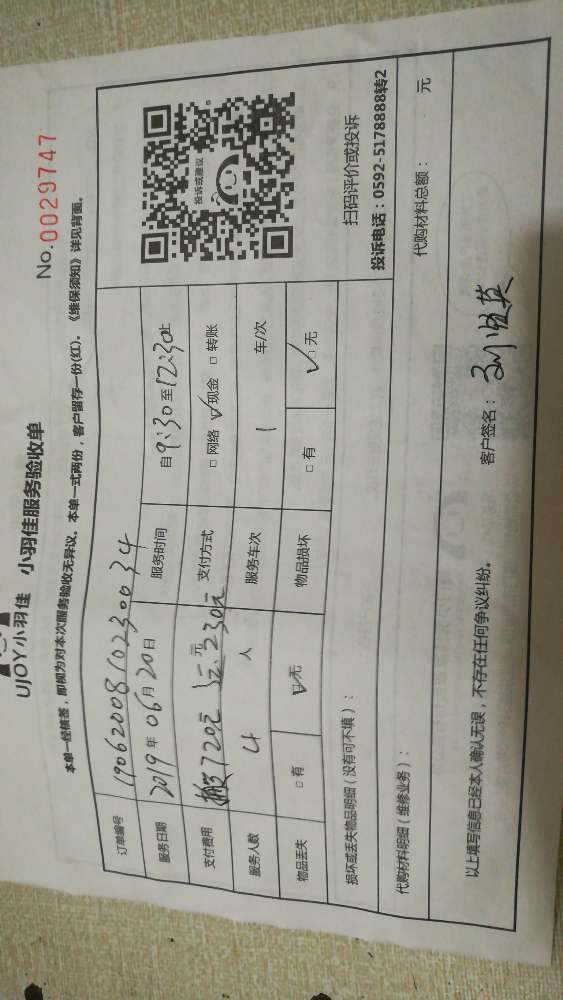 UJOY小羽佳 小羽佳服务验收单
No. 0029747
本单一经核签，即视为对本次服务验收无异议。本单一式两份，客户留存一份(红)。《维保须知》详见背面。
订单编号 19062008102300 34
服务日期 2019 年 06 月 20 日 服务时间 自 9:30 至 12:30 止
支付费用 搬 720元 元 230元 支付方式 □ 网络 ☑ 现金 □ 转账
服务人数 4 人 服务车次 1 车/次
物品丢失 □ 有 ☑ 无 物品损坏 □ 有 ☑ 无
投诉或建议
扫码评价或投诉
投诉电话：0592-5178888转2
损坏或丢失物品明细（没有可不填）：
代购材料明细（维修业务）： 代购材料总额： 元
以上填写信息已经本人确认无误，不存在任何争议纠纷。 客户签名：